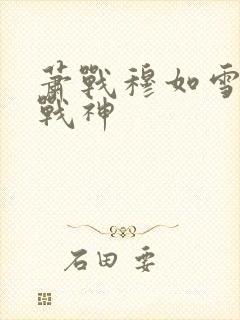 萧戰穆如雪
戰神
石田 要